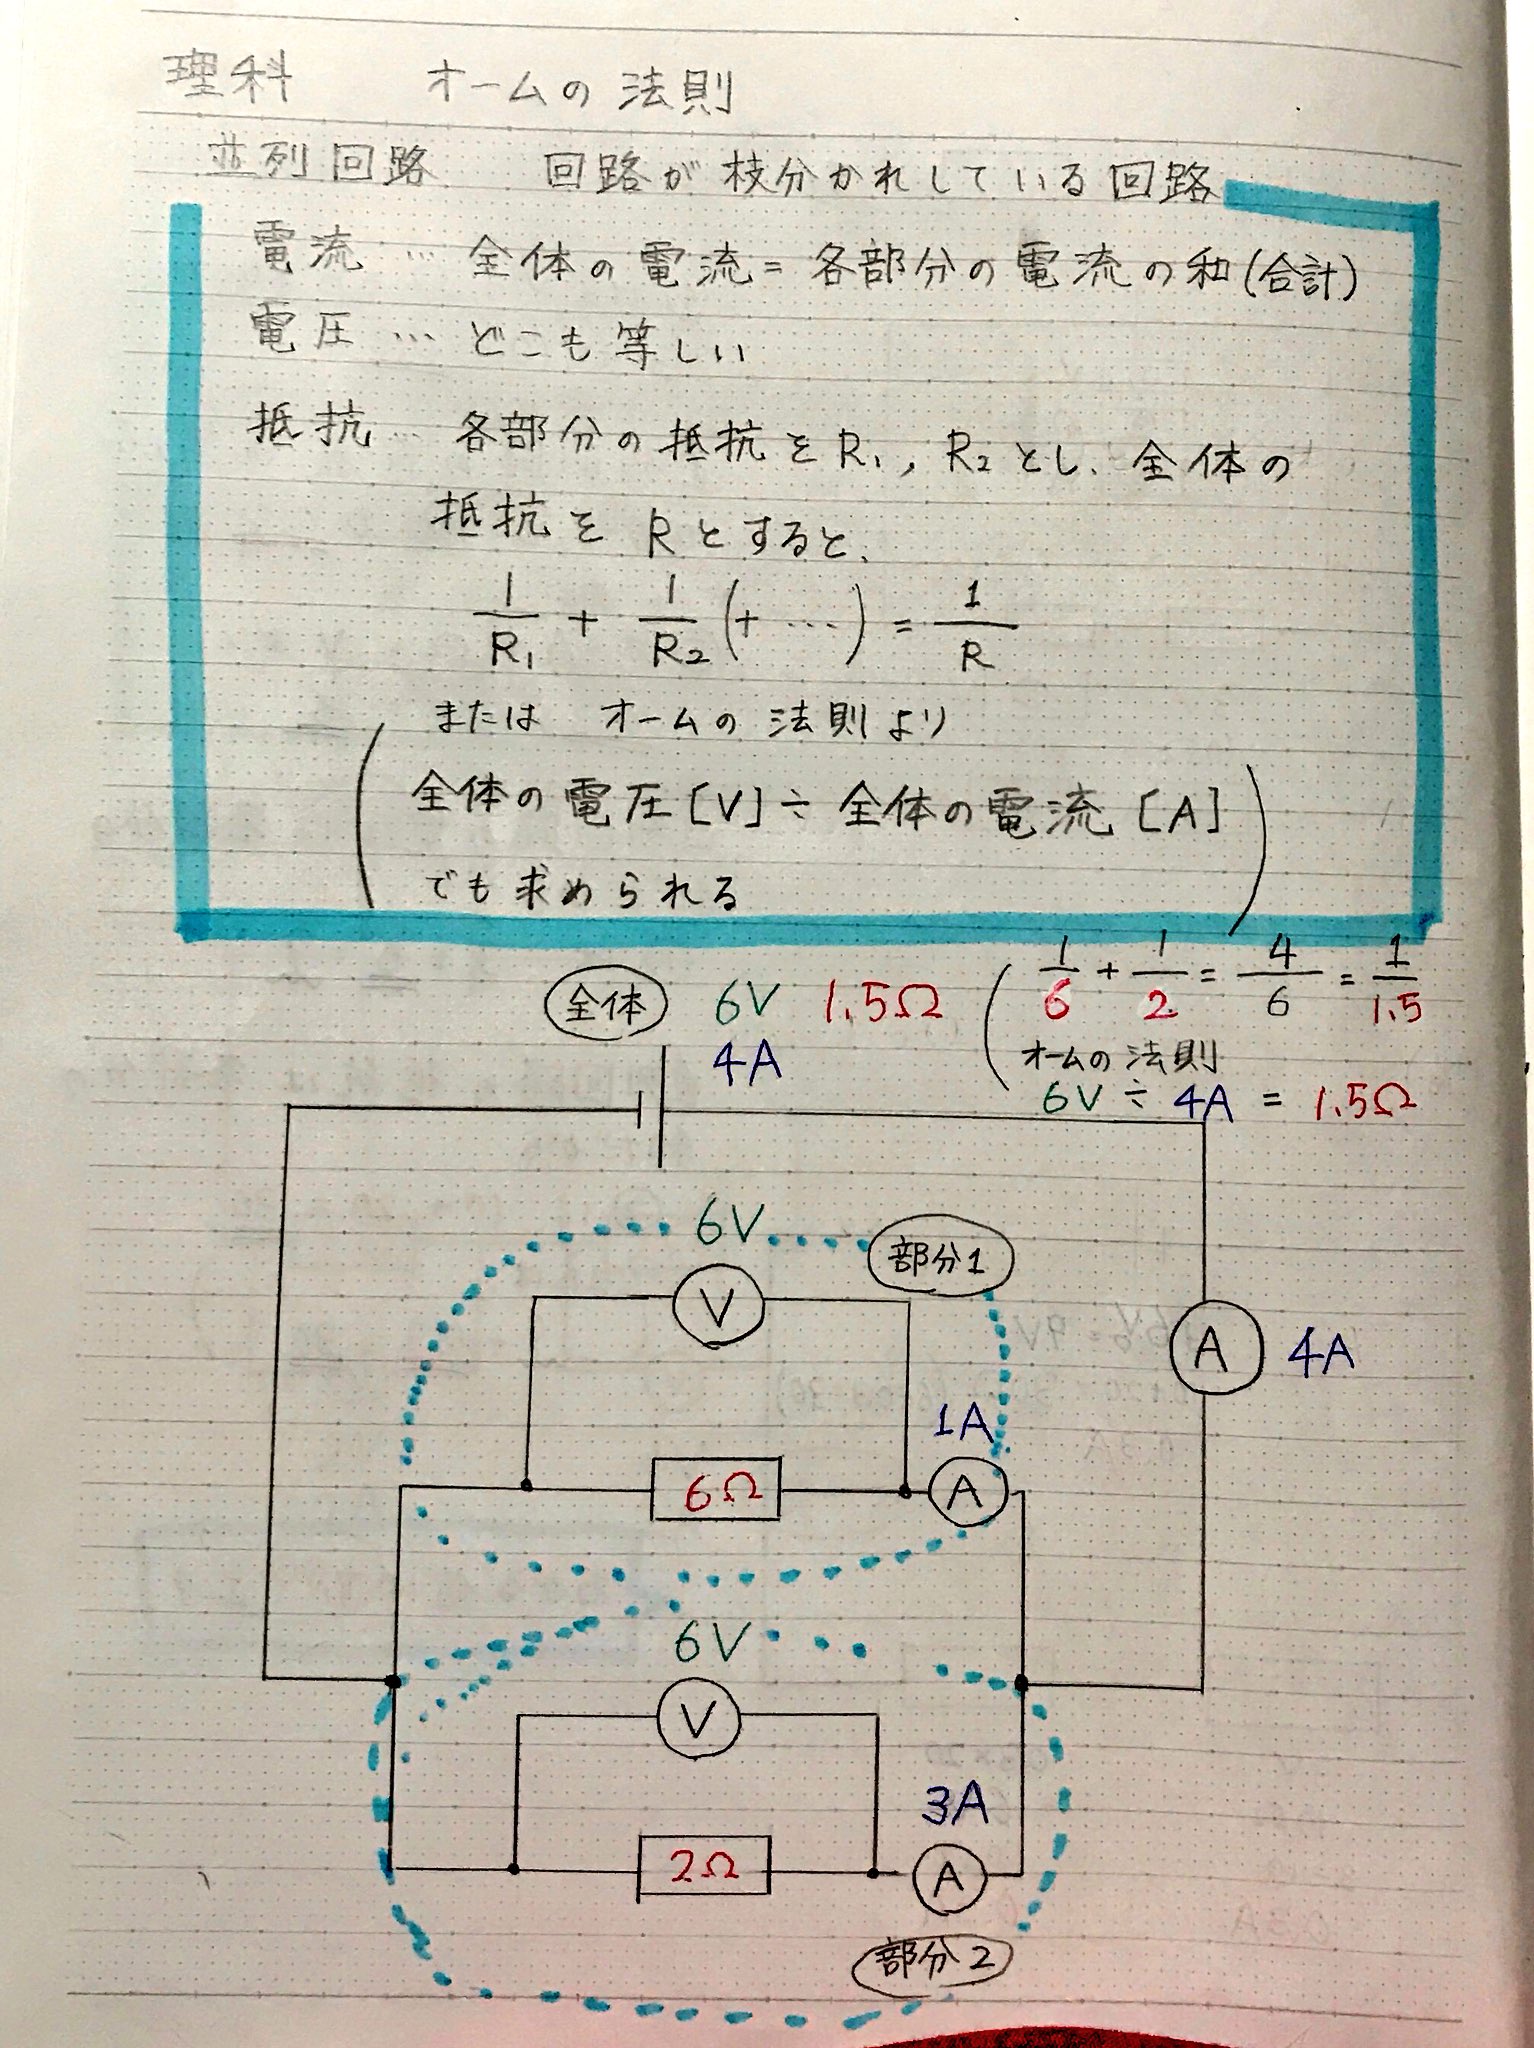 理科 オームの法則
並列回路 回路が枝分かれしている回路
電流… 全体の電流=各部分の電流の和(合計)
電圧… どこも等しい
抵抗… 各部分の抵抗をR₁, R₂とし、全体の
抵抗を Rとすると、
1/R₁ + 1/R₂ (+ ‥‥) = 1/R
または オームの法則より
全体の電圧[V]÷全体の電流[A]
でも求められる
全体 6V 1.5Ω
4A
1/6 + 1/2 = 4/6 = 1/1.5
オームの法則
6V ÷ 4A = 1.5Ω
6V
部分1
V
A 4A
1A
6Ω A
6V
V
3A
2Ω A
部分2